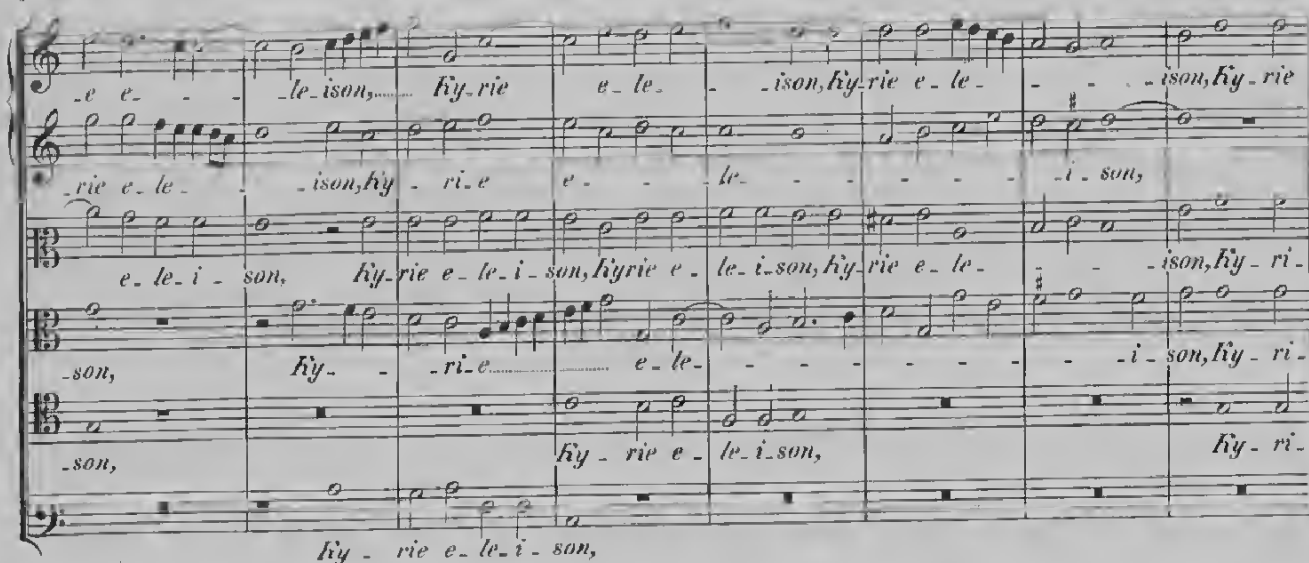 -e e- - -le-ison,...... Ky-rie e-le- - -ison, Ky-rie e-le- - - -ison, Ky-rie
-rie e-le- - -ison, Ky-ri-e e- - -le- - - - - - -i-son,
e-le-i-son, Ky-rie e-le-i-son, Kyrie e-le-i-son, Ky-rie e-le- - - -ison, Ky-ri-
-son, Ky- -ri-e............ e-le- - - - - - - -i-son, Ky-ri-
-son, Ky-rie e-le-i-son, Ky-ri-
Ky-rie e-le-i-son,